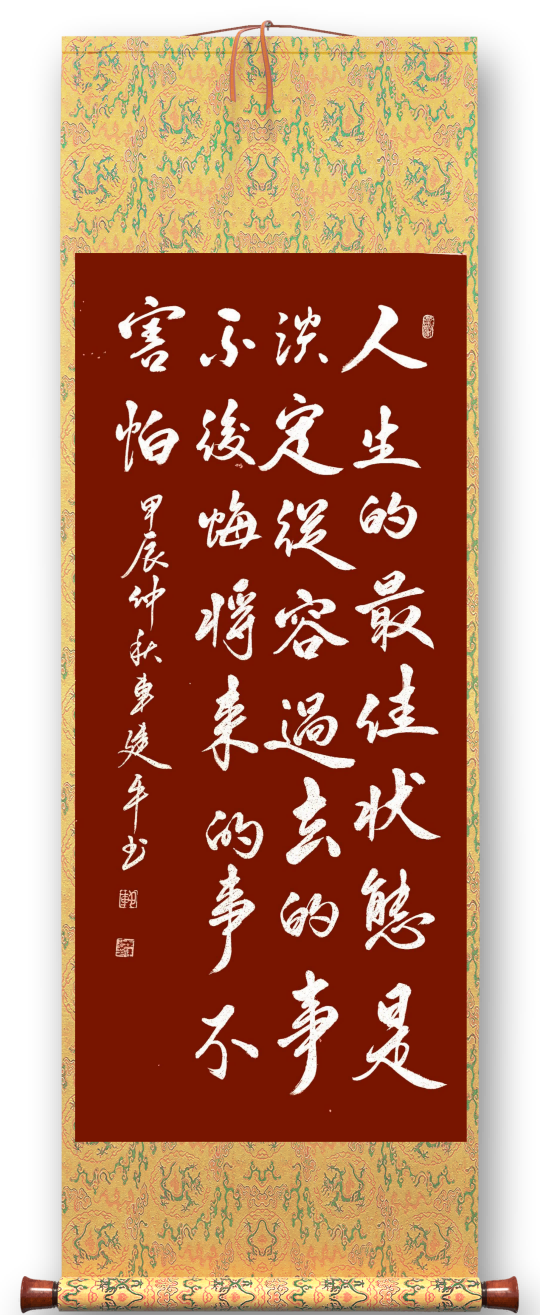 人生的最佳状態是
淡定從容過去的事
不後悔將来的事不
害怕
甲辰仲秋車建平书